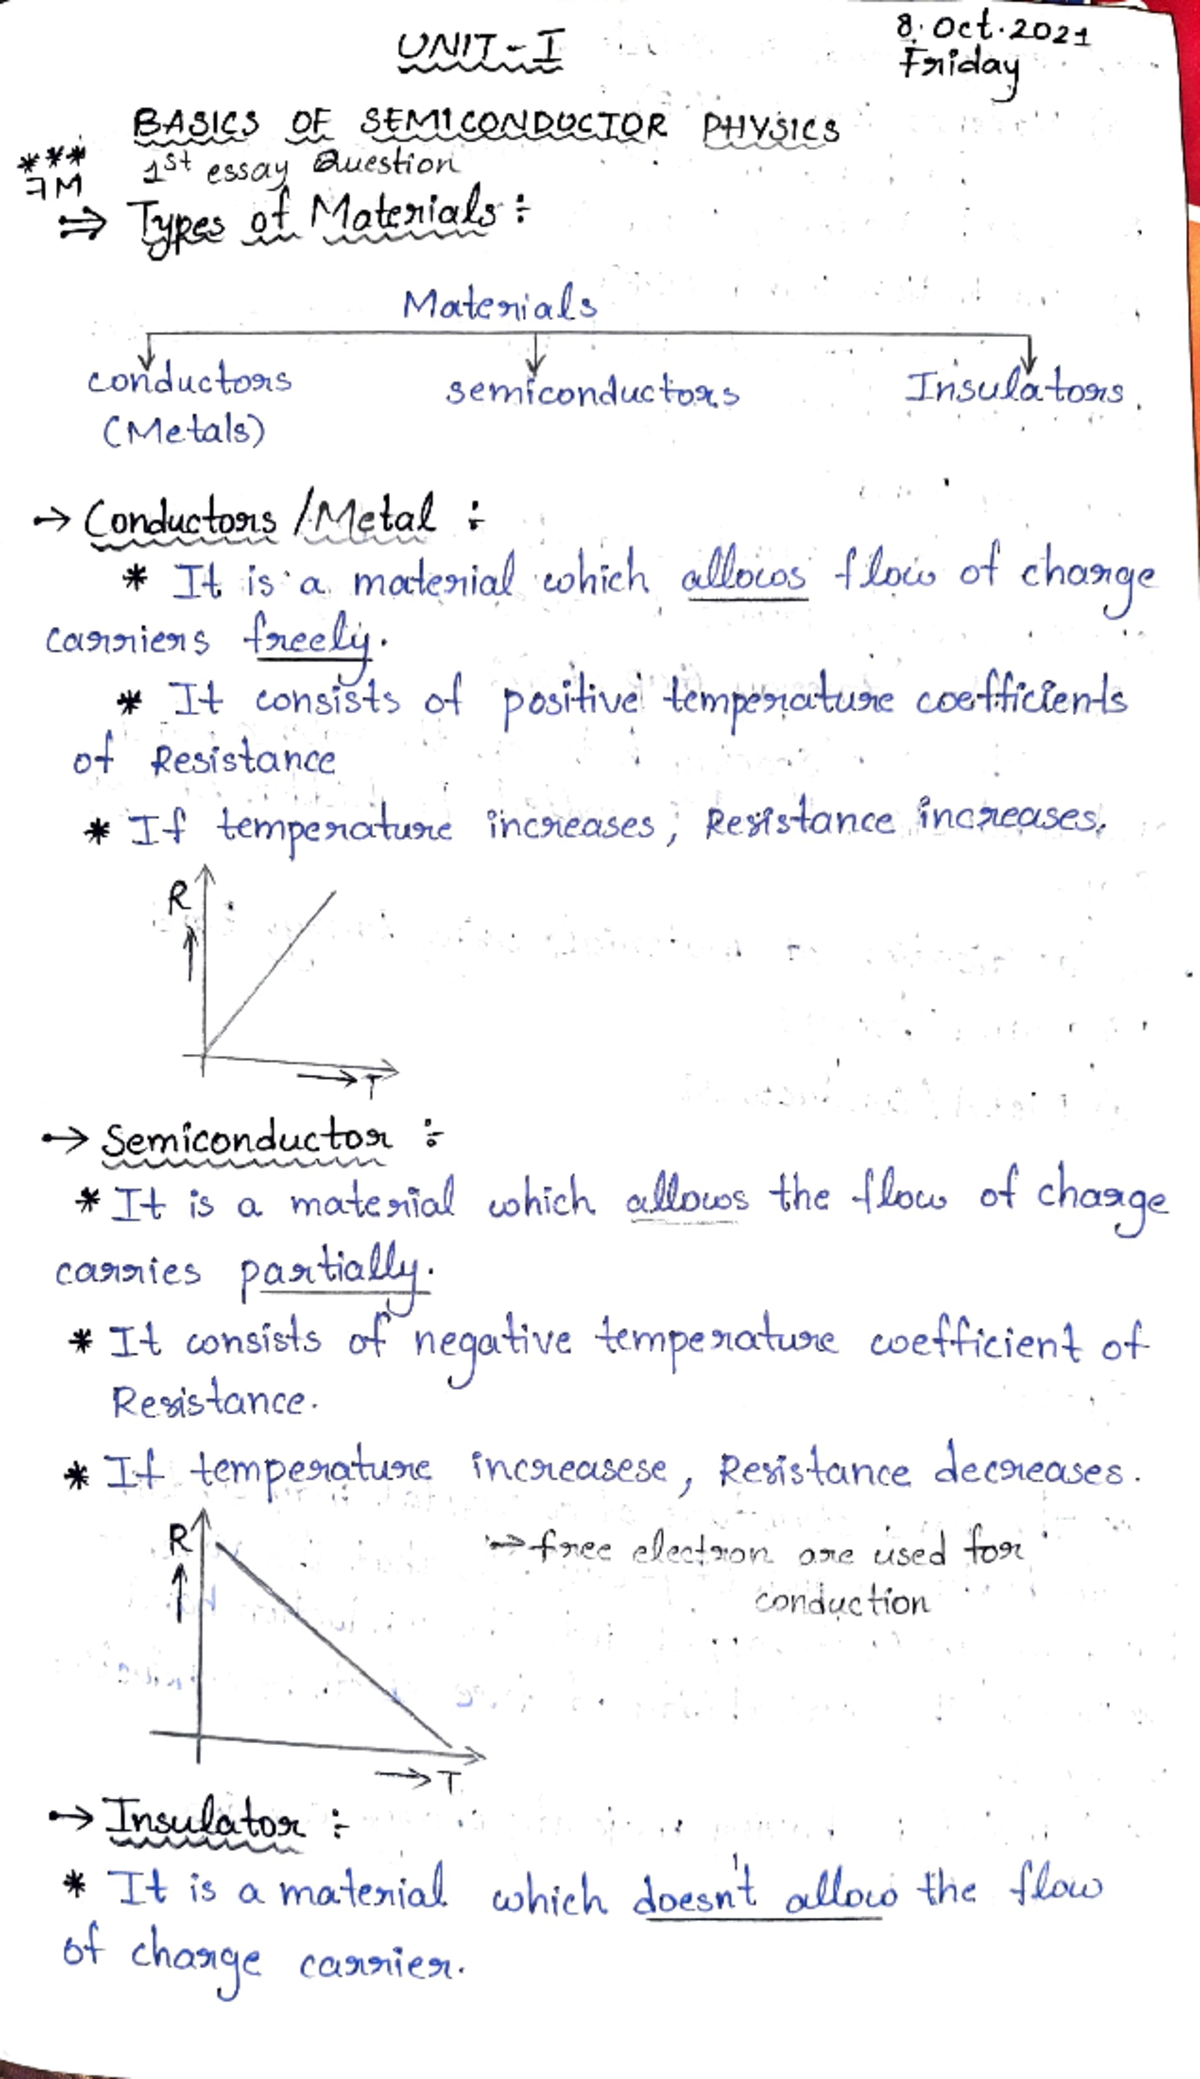 8. Oct. 2021
UNIT-I
Friday
BASICS OF SEMICONDUCTOR PHYSICS
*** 1st essay Question
7M
⇒ Types of Materials :
Materials
conductors semiconductors Insulators.
(Metals)
→ Conductors / Metal :
* It is a material which allows flow of charge
carriers freely.
* It consists of positive temperature coefficients
of Resistance
* If temperature increases, Resistance increases.
R
↑
→ T
→ Semiconductor :
* It is a material which allows the flow of charge
carries partially.
* It consists of negative temperature coefficient of
Resistance.
* If temperature increasese, Resistance decreases.
R → free electron are used for
↑ conduction
→ T
→ Insulator :
* It is a material which doesn't allow the flow
of charge carrier.